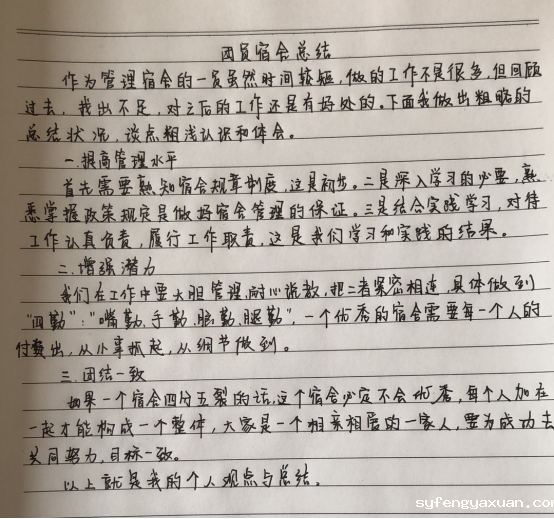 团员宿舍总结
作为管理宿舍的一员虽然时间较短,做的工作不是很多,但回顾
过去,找出不足,对之后的工作还是有好处的。下面我做出粗略的
总结状况,谈点粗浅认识和体会。
一.提高管理水平
首先需要熟知宿舍规章制度,这是初步。二是深入学习的必要,熟
悉掌握政策规定是做好宿舍管理的保证。三是结合实践学习,对待
工作认真负责,履行工作职责,这是我们学习和实践的结果。
二.增强潜力
我们在工作中要大胆管理,耐心说教,把二者紧密相连,具体做到
"四勤":"嘴勤,手勤,眼勤,腿勤",一个优秀的宿舍需要每一个人的
付出,从小事抓起,从细节做到。
三.团结一致
如果一个宿舍四分五裂的话,这个宿舍必定不会优秀,每个人加在
一起才能构成一个整体,大家是一个相亲相爱的一家人,要为成功去
共同努力,目标一致。
以上就是我的个人观点与总结.
syfengyaxuan.com